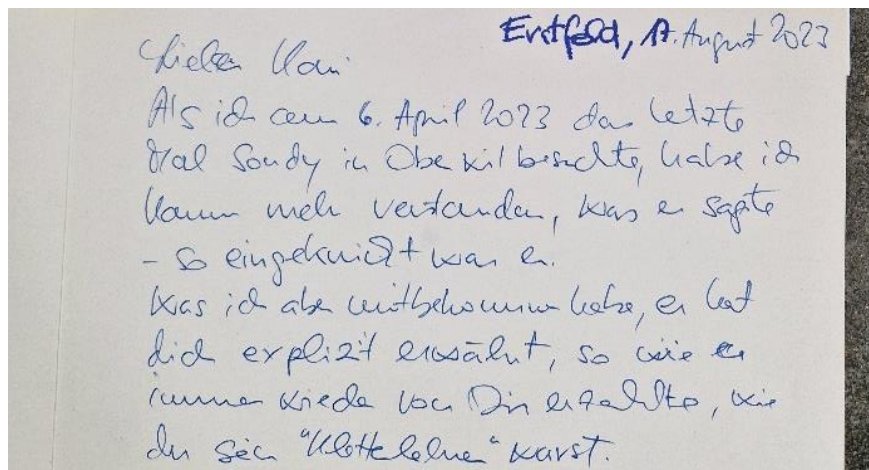 Erstfeld, 17. August 2023
Lieber Kari
Als ich am 6. April 2023 das letzte
Mal Sandy in Oberwil besuchte, habe ich
kaum mehr verstanden, was er sagte
- so eingeknickt war er.
Was ich aber mitbekommen habe, er hat
dich explizit erwähnt, so wie er
immer wieder von Dir erzählte, wie
du sein "Kletterlehrer" warst.